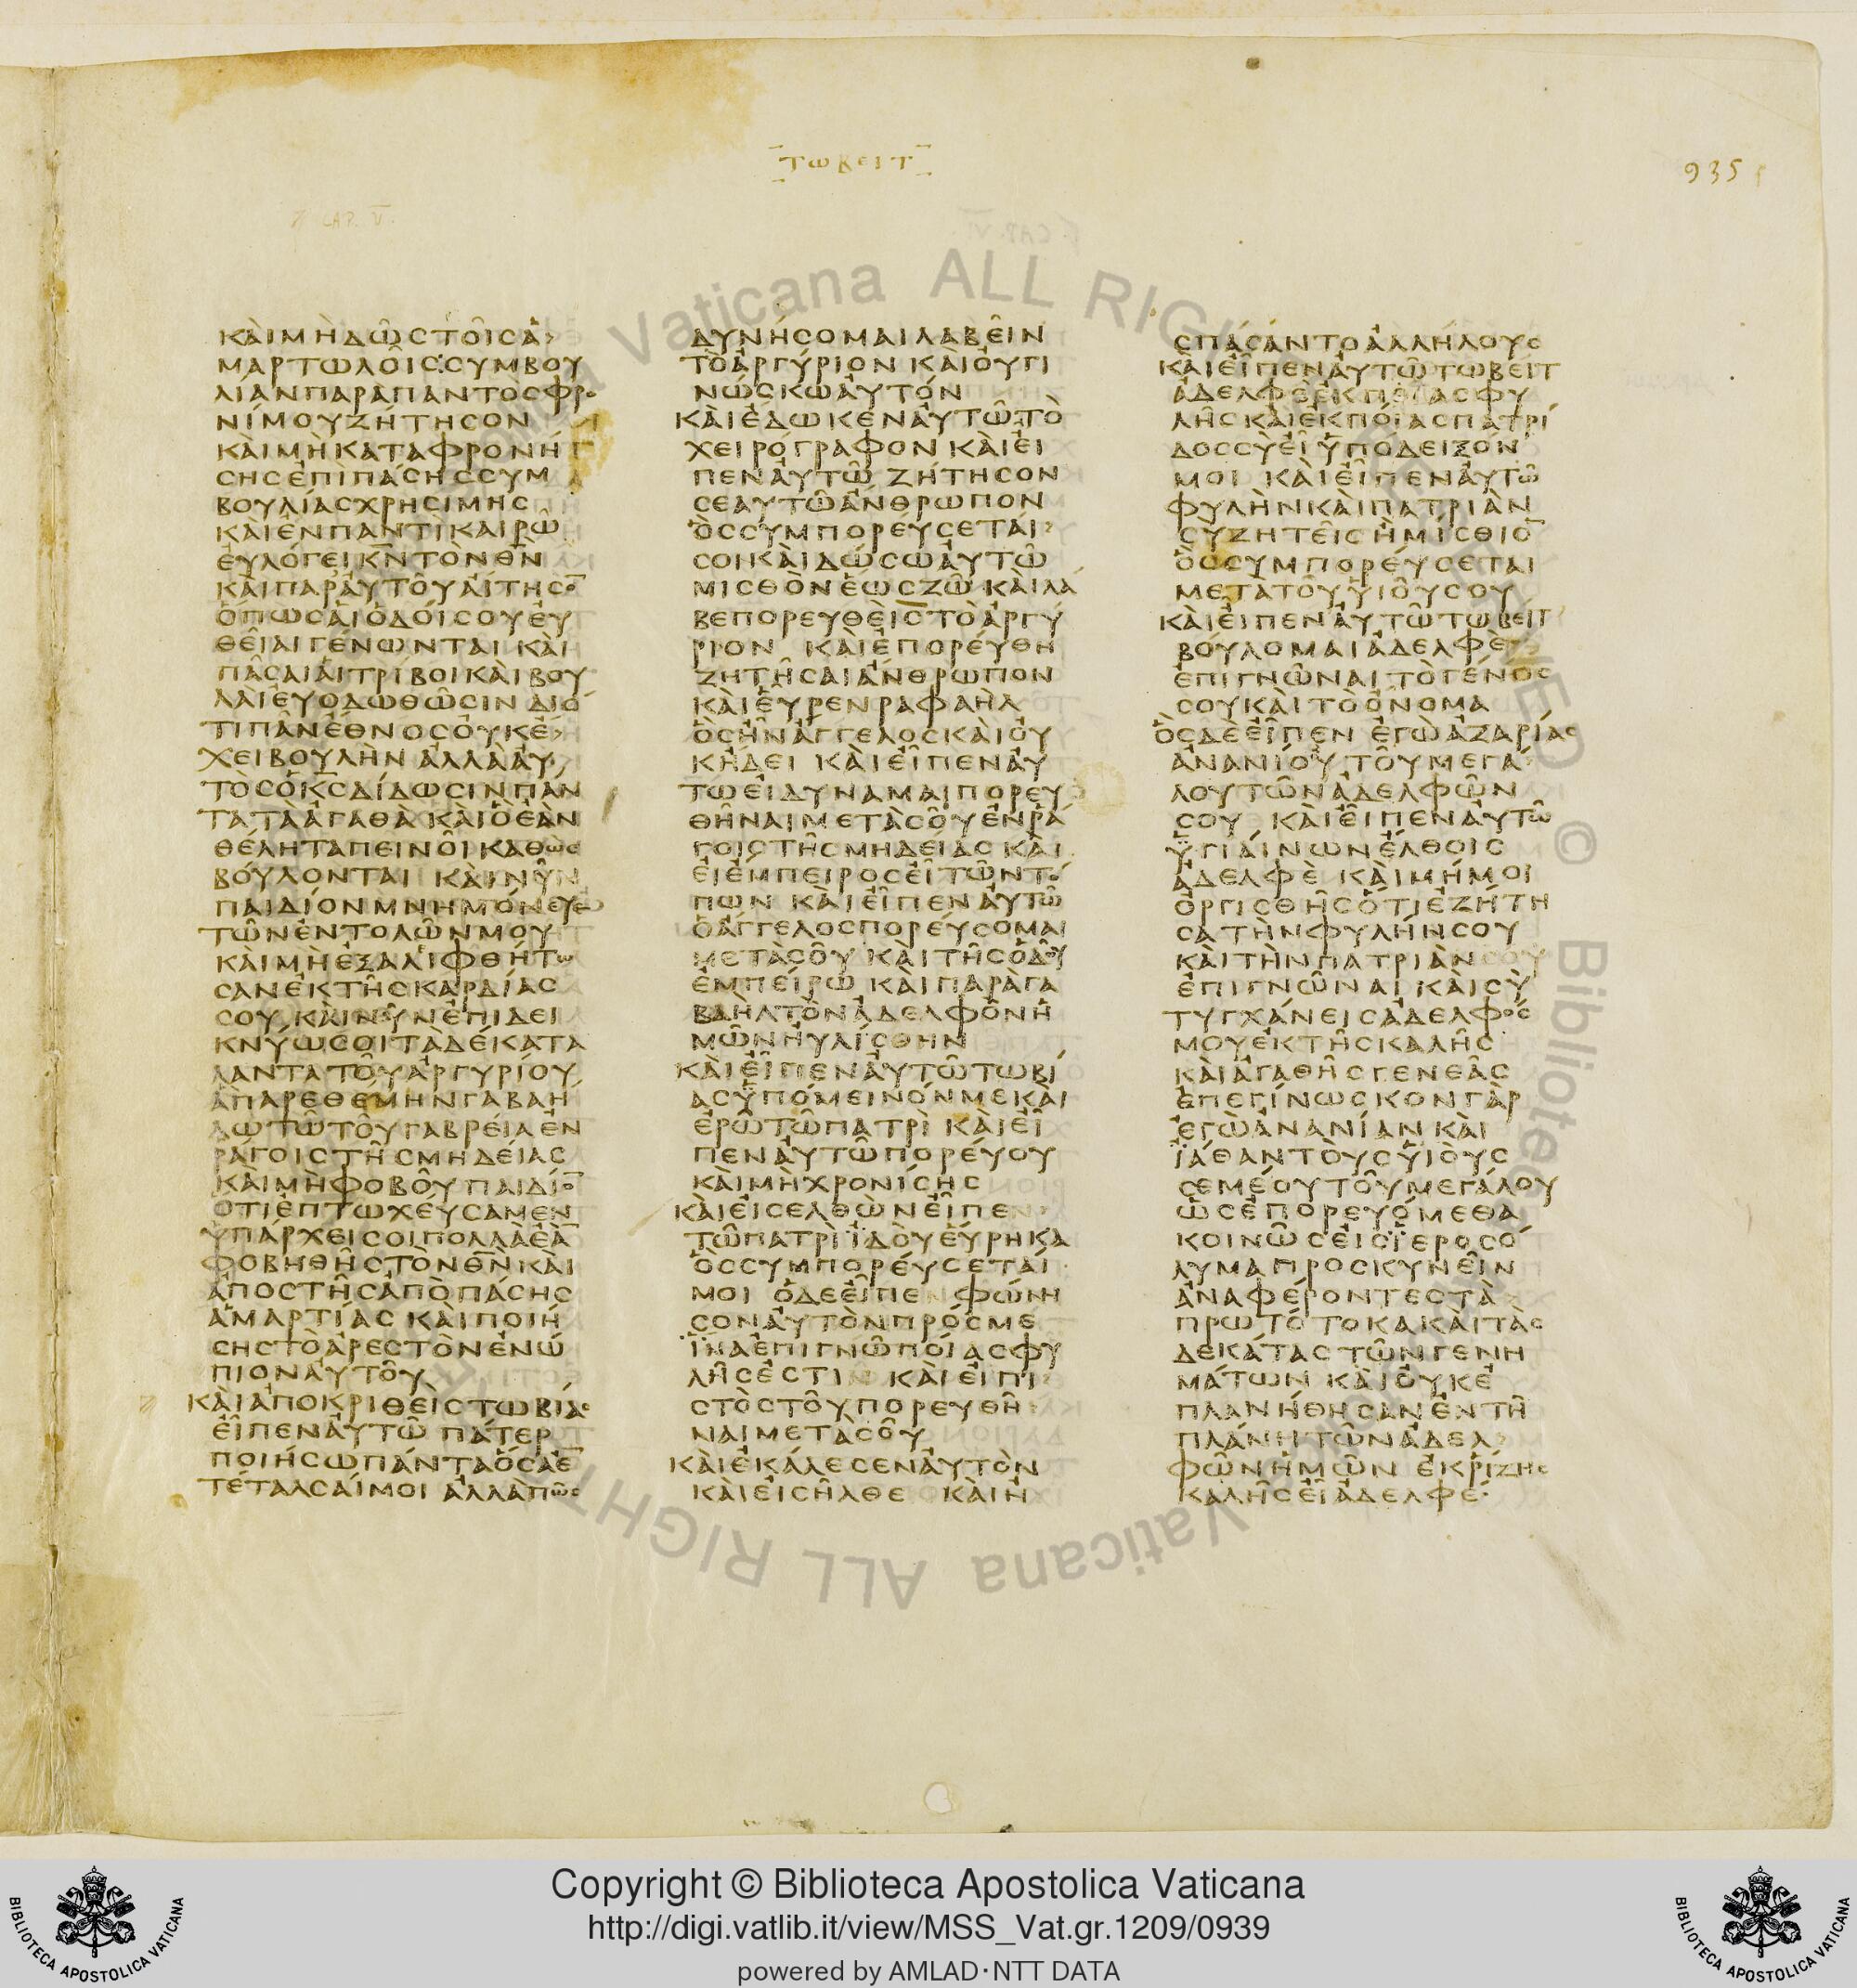 ΤΩΒΕΙΤ
935
CAP. V.
ΚΑΙΜΗΔΩΣΤΟΙΣΑ
ΜΑΡΤΩΛΟΙΣ:ΣΥΜΒΟΥ
ΛΙΑΝΠΑΡΑΠΑΝΤΟΣΦΡΟ
ΝΙΜΟΥΖΗΤΗΣΟΝ
ΚΑΙΜΗΚΑΤΑΦΡΟΝΗ
ΣΗΣΕΠΙΠΑΣΗΣΣΥΜ
ΒΟΥΛΙΑΣΧΡΗΣΙΜΗΣ
ΚΑΙΕΝΠΑΝΤΙΚΑΙΡΩ
ΕΥΛΟΓΕΙΚ̅Ν̅ΤΟΝΘ̅Ν̅
ΚΑΙΠΑΡΑΥΤΟΥΑΙΤΗΣΟ̅
ΟΠΩΣΑΙΟΔΟΙΣΟΥΕΥ
ΘΕΙΑΙΓΕΝΩΝΤΑΙ ΚΑΙ
ΠΑΣΑΙΑΙΤΡΙΒΟΙΚΑΙΒΟΥ
ΛΑΙΕΥΟΔΩΘΩΣΙΝ ΔΙΟ
ΤΙΠΑΝΕΘΝΟΣΟΥΚΕ
ΧΕΙΒΟΥΛΗΝ ΑΛΛΑΑΥ
ΤΟΣΟΚ̅Σ̅ΔΙΔΩΣΙΝΠΑΝ
ΤΑΤΑΑΓΑΘΑΚΑΙΟΕΑΝ
ΘΕΛΗΤΑΠΕΙΝΟΙΚΑΘΩΣ
ΒΟΥΛΟΝΤΑΙ ΚΑΙΝΥΝ
ΠΑΙΔΙΟΝΜΝΗΜΟΝΕΥΕ
ΤΩΝΕΝΤΟΛΩΝΜΟΥ
ΚΑΙΜΗΕΞΑΛΙΦΘΗΤΩ
ΣΑΝΕΚΤΗΣΚΑΡΔΙΑΣ
ΣΟΥ ΚΑΙΝΥΝΕΠΙΔΕΙ
ΚΝΥΩΣΟΙΤΑΔΕΚΑΤΑ
ΛΑΝΤΑΤΟΥΑΡΓΥΡΙΟΥ
ΑΠΑΡΕΘΕΜΗΝΓΑΒΑΗ
ΛΩΤΩΤΟΥΓΑΒΡΕΙΑΕΝ
ΡΑΓΟΙΣΤΗΣΜΗΔΕΙΑΣ
ΚΑΙΜΗΦΟΒΟΥΠΑΙΔΙΟ̅
ΟΤΙΕΠΤΩΧΕΥΣΑΜΕΝ
ΥΠΑΡΧΕΙΣΟΙΠΟΛΛΑΕΑ̅
ΦΟΒΗΘΗΣΤΟΝΘ̅Ν̅ΚΑΙ
ΑΠΟΣΤΗΣΑΠΟΠΑΣΗΣ
ΑΜΑΡΤΙΑΣ ΚΑΙΠΟΙΗ
ΣΗΣΤΟΑΡΕΣΤΟΝΕΝΩ
ΠΙΟΝΑΥΤΟΥ
ΚΑΙΑΠΟΚΡΙΘΕΙΣΤΩΒΙΑΣ
ΕΙΠΕΝΑΥΤΩ ΠΑΤΕΡ
ΠΟΙΗΣΩΠΑΝΤΑΟΣΑΕ̅
ΤΕΤΑΛΣΑΙΜΟΙ ΑΛΛΑΠΩΣ
ΔΥΝΗΣΟΜΑΙΛΑΒΕΙΝ
ΤΟΑΡΓΥΡΙΟΝ ΚΑΙΟΥΓΙ
ΝΩΣΚΩΑΥΤΟΝ
ΚΑΙΕΔΩΚΕΝΑΥΤΩΤΟ
ΧΕΙΡΟΓΡΑΦΟΝ ΚΑΙΕΙ
ΠΕΝΑΥΤΩ ΖΗΤΗΣΟΝ
ΣΕΑΥΤΩΑΝΘΡΩΠΟΝ
ΟΣΣΥΜΠΟΡΕΥΣΕΤΑΙ
ΣΟΙΚΑΙΔΩΣΩΑΥΤΩ
ΜΙΣΘΟΝΕΩΣΖΩ ΚΑΙΛΑ
ΒΕΠΟΡΕΥΘΕΙΣΤΟΑΡΓΥ
ΡΙΟΝ ΚΑΙΕΠΟΡΕΥΘΗ
ΖΗΤΗΣΑΙΑΝΘΡΩΠΟΝ
ΚΑΙΕΥΡΕΝΡΑΦΑΗΛ
ΟΣΗΝΑΓΓΕΛΟΣΚΑΙΟΥ
ΚΗΔΕΙ ΚΑΙΕΙΠΕΝΑΥ
ΤΩΕΙΔΥΝΑΜΑΙΠΟΡΕΥ
ΘΗΝΑΙΜΕΤΑΣΟΥΕΝΡΑ
ΓΟΙΣΤΗΣΜΗΔΕΙΑΣ ΚΑΙ
ΕΙΕΜΠΕΙΡΟΣΕΙΤΩΝΤΟ
ΠΩΝ ΚΑΙΕΙΠΕΝΑΥΤΩ
ΟΑΓΓΕΛΟΣΠΟΡΕΥΣΟΜΑΙ
ΜΕΤΑΣΟΥ ΚΑΙΤΗΣΟΔΟΥ
ΕΜΠΕΙΡΩ ΚΑΙΠΑΡΑΓΑ
ΒΑΗΛΤΟΝΑΔΕΛΦΟΝΗ
ΜΩΝΗΥΛΙΣΘΗΝ
ΚΑΙΕΙΠΕΝΑΥΤΩΤΩΒΙ
ΑΣΫΠΟΜΕΙΝΟΝΜΕΚΑΙ
ΕΡΩΤΩΠΑΤΡΙ ΚΑΙΕΙ
ΠΕΝΑΥΤΩΠΟΡΕΥΟΥ
ΚΑΙΜΗΧΡΟΝΙΣΗΣ
ΚΑΙΕΙΣΕΛΘΩΝΕΙΠΕ
ΤΩΠΑΤΡΙΪΔΟΥΕΥΡΗΚΑ
ΟΣΣΥΜΠΟΡΕΥΣΕΤΑΙ
ΜΟΙ ΟΔΕΕΙΠΕ ΦΩΝΗ
ΣΟΝΑΥΤΟΝΠΡΟΣΜΕ
ΪΝΑΕΠΙΓΝΩΠΟΙΑΣΦΥ
ΛΗΣΕΣΤΙ ΚΑΙΕΙΠΙ
ΣΤΟΣΤΟΥΠΟΡΕΥΘΗ
ΝΑΙΜΕΤΑΣΟΥ
ΚΑΙΕΚΑΛΕΣΕΝΑΥΤΟΝ
ΚΑΙΕΙΣΗΛΘΕ ΚΑΙΗ
ΣΠΑΣΑΝΤΟΑΛΛΗΛΟΥΣ
ΚΑΙΕΙΠΕΝΑΥΤΩΤΩΒΕΙΤ
ΑΔΕΛΦΕΕΚΠΟΙΑΣΦΥ
ΛΗΣΚΑΙΕΚΠΟΙΑΣΠΑΤΡΙ
ΔΟΣΣΥΕΙΫΠΟΔΕΙΞΟΝ
ΜΟΙ ΚΑΙΕΙΠΕΝΑΥΤΩ
ΦΥΛΗΝΚΑΙΠΑΤΡΙΑΝ
ΣΥΖΗΤΕΙΣΗΜΙΣΘΙΟ̅
ΟΣΣΥΜΠΟΡΕΥΣΕΤΑΙ
ΜΕΤΑΤΟΥΥΙΟΥΣΟΥ
ΚΑΙΕΙΠΕΝΑΥΤΩΤΩΒΕΙΤ
ΒΟΥΛΟΜΑΙΑΔΕΛΦΕ
ΕΠΙΓΝΩΝΑΙΤΟΓΕΝΟΣ
ΣΟΥΚΑΙΤΟΟΝΟΜΑ
ΟΣΔΕΕΙΠΕΝ ΕΓΩΑΖΑΡΙΑΣ
ΑΝΑΝΙΟΥ ΤΟΥΜΕΓΑ
ΛΟΥΤΩΝΑΔΕΛΦΩΝ
ΣΟΥ ΚΑΙΕΙΠΕΝΑΥΤΩ
ΫΓΙΑΙΝΩΝΕΛΘΟΙΣ
ΑΔΕΛΦΕ ΚΑΙΜΗΜΟΙ
ΟΡΓΙΣΘΗΣΟΤΙΕΖΗΤΗ
ΣΑΤΗΝΦΥΛΗΝΣΟΥ
ΚΑΙΤΗΝΠΑΤΡΙΑΝΣΟΥ
ΕΠΙΓΝΩΝΑΙ ΚΑΙΣΥ
ΤΥΓΧΑΝΕΙΣΑΔΕΛΦΟΣ
ΜΟΥΕΚΤΗΣΚΑΛΗΣ
ΚΑΙΑΓΑΘΗΣΓΕΝΕΑΣ
ΕΠΕΓΙΝΩΣΚΟΝΓΑΡ
ΕΓΩΑΝΑΝΙΑΝ ΚΑΙ
ΪΑΘΑΝΤΟΥΣΫΙΟΥΣ
ΣΕΜΕΟΥΤΟΥΜΕΓΑΛΟΥ
ΩΣΕΠΟΡΕΥΟΜΕΘΑ
ΚΟΙΝΩΣΕΙΣΪΕΡΟΣΟ
ΛΥΜΑΠΡΟΣΚΥΝΕΙΝ
ΑΝΑΦΕΡΟΝΤΕΣΤΑ
ΠΡΩΤΟΤΟΚΑΚΑΙΤΑΣ
ΔΕΚΑΤΑΣΤΩΝΓΕΝΗ
ΜΑΤΩΝ ΚΑΙΟΥΚΕ
ΠΛΑΝΗΘΗΣΑΝΕΝΤΗ
ΠΛΑΝΗΤΩΝΑΔΕΛ
ΦΩΝΗΜΩΝ ΕΚΡΙΖΗΣ
ΚΑΛΗΣΕΙΑΔΕΛΦΕ
Copyright © Biblioteca Apostolica Vaticana
http://digi.vatlib.it/view/MSS_Vat.gr.1209/0939
powered by AMLAD·NTT DATA
BIBLIOTECA APOSTOLICA VATICANA
BIBLIOTECA APOSTOLICA VATICANA